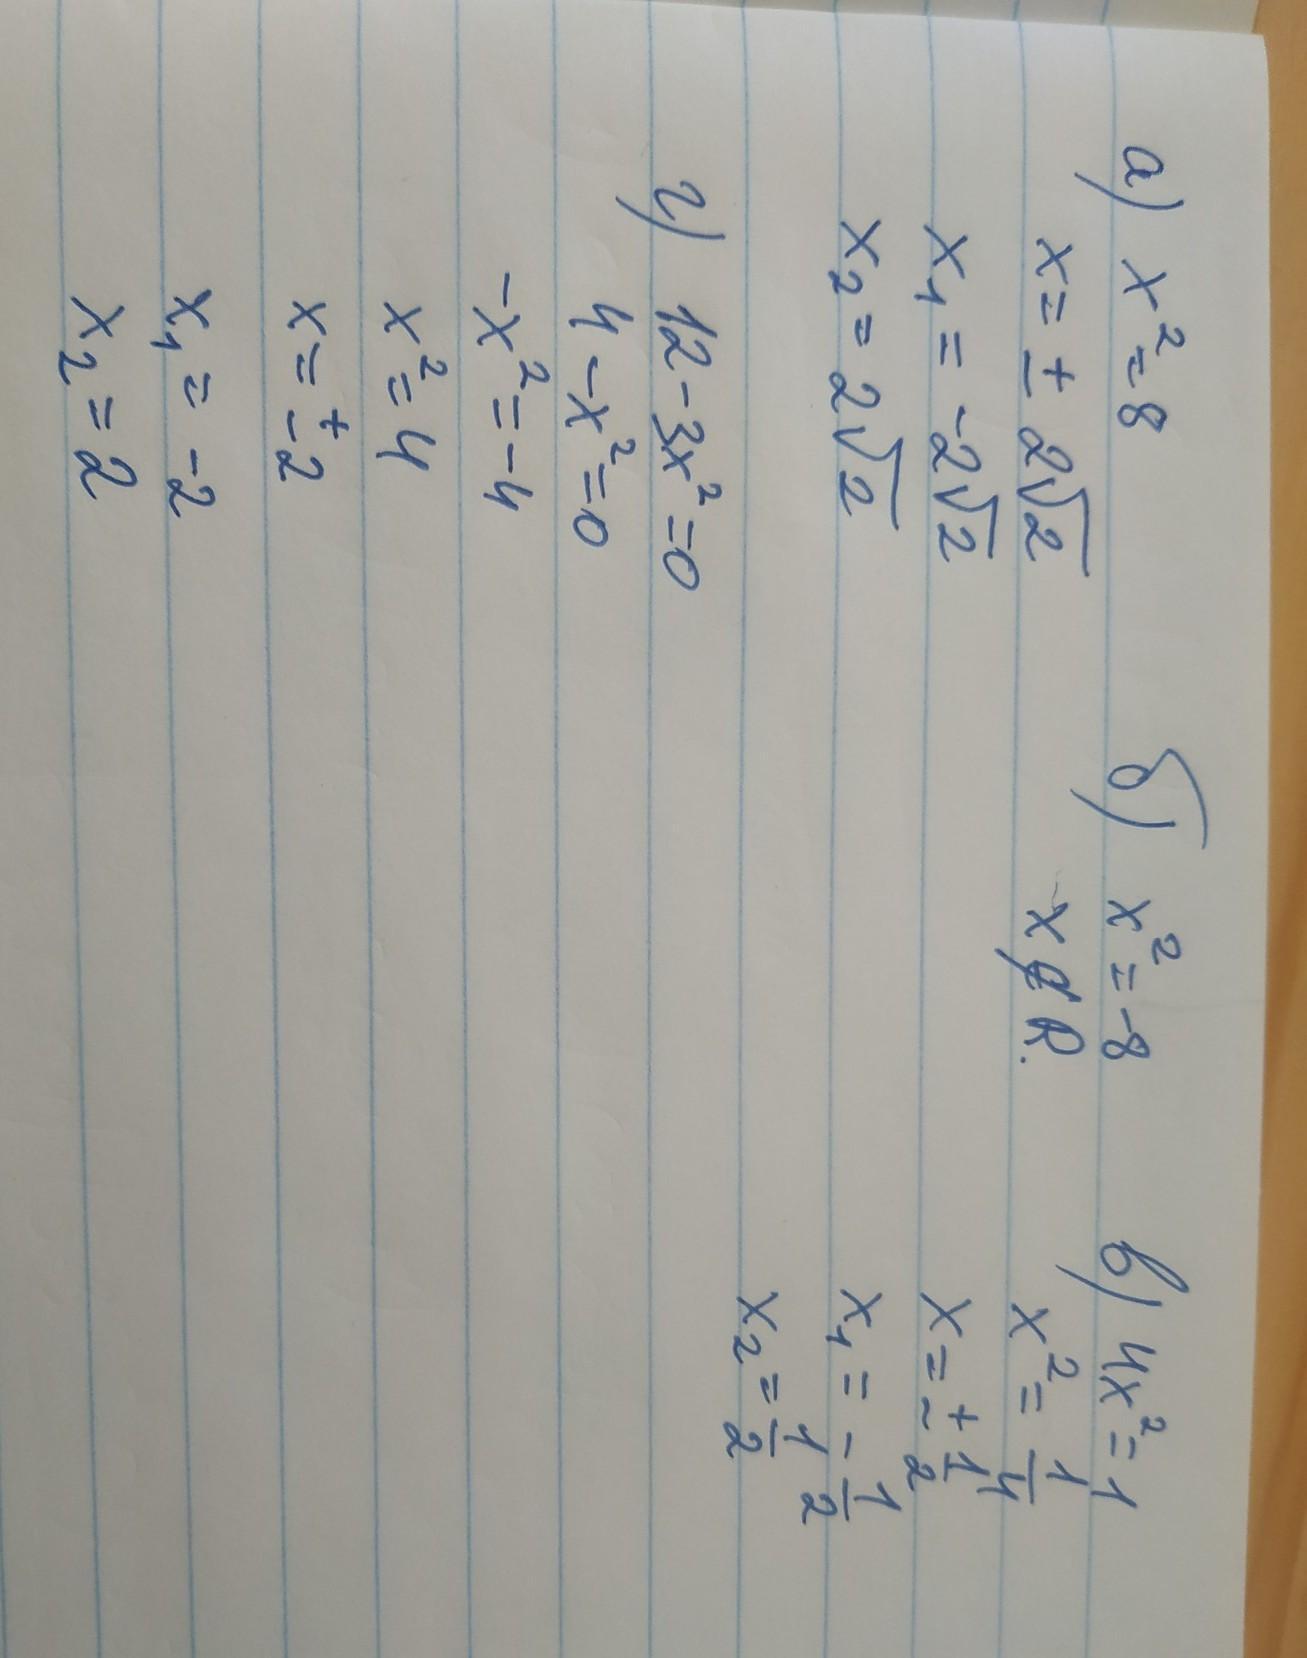 а) x² = 8
x = ± 2√2
x₁ = -2√2
x₂ = 2√2
б) x² = -8
x ∉ R.
в) 4x² = 1
x² = 1/4
x = ± 1/2
x₁ = - 1/2
x₂ = 1/2
г) 12 - 3x² = 0
4 - x² = 0
-x² = -4
x² = 4
x = ±2
x₁ = -2
x₂ = 2